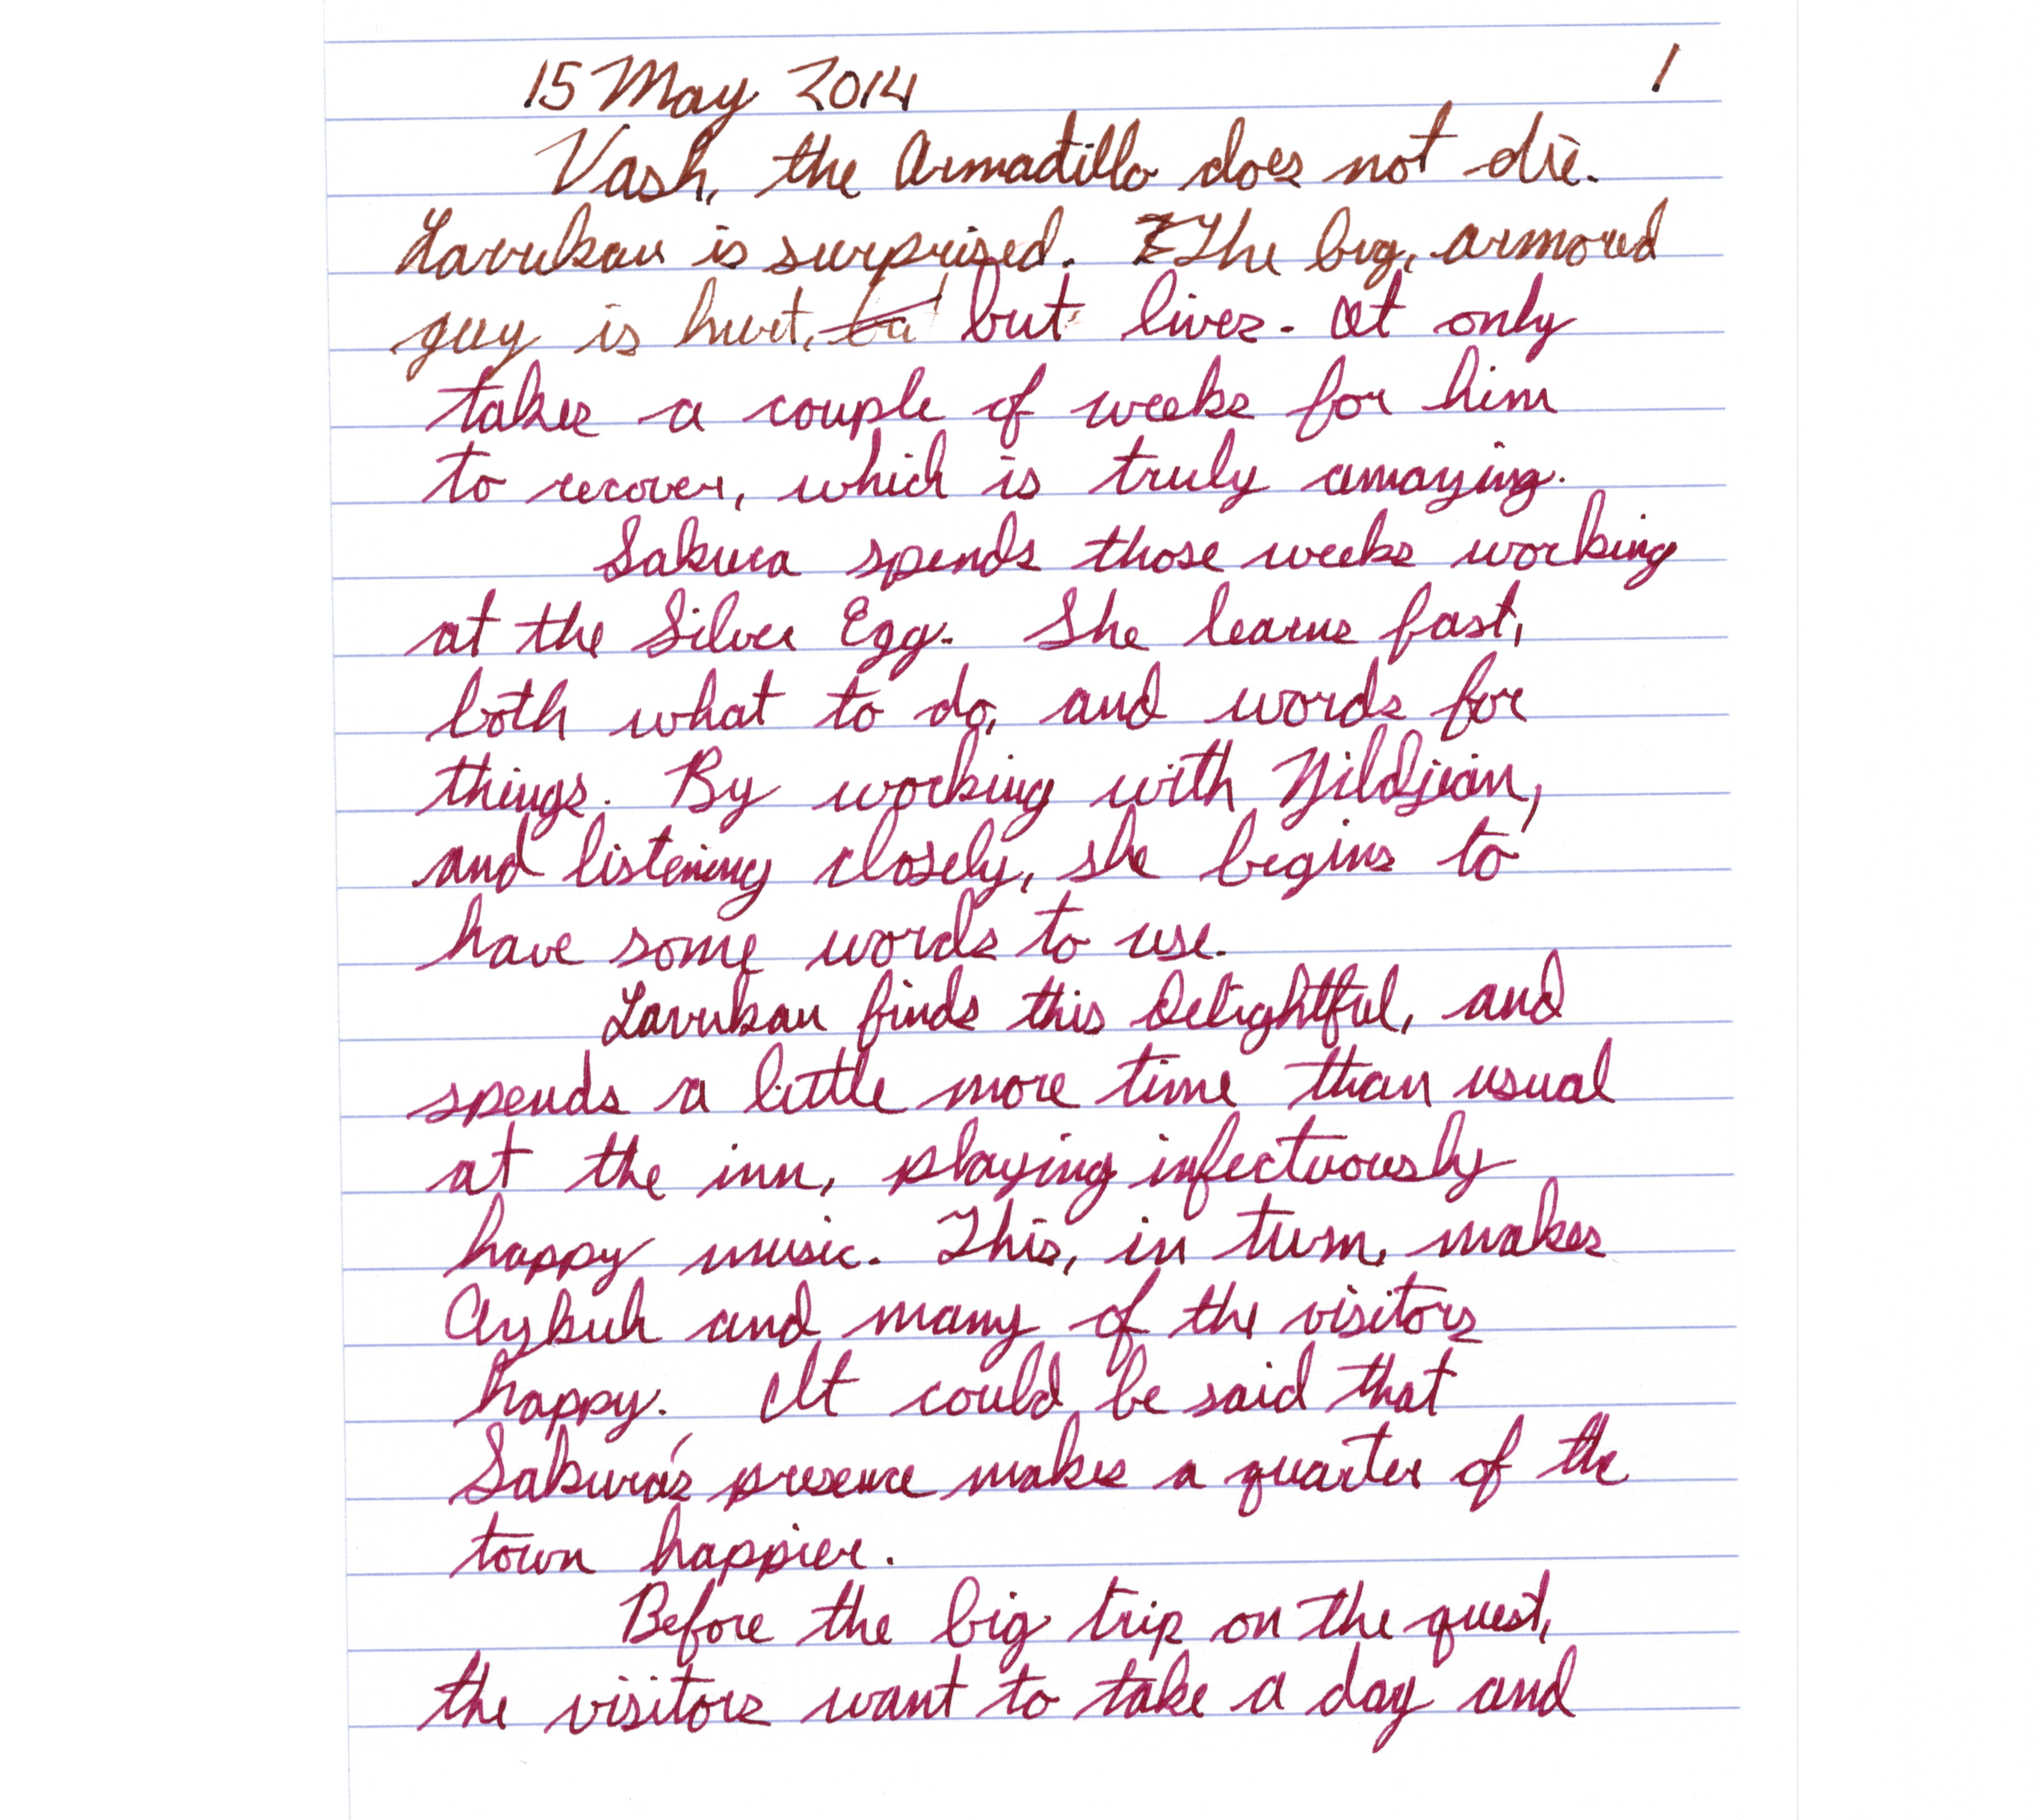 15 May 2014 1
Vash, the Armadillo does not die.
Lavukau is surprised. The big, armored
guy is hurt, but lives. It only
takes a couple of weeks for him
to recover, which is truly amazing.
Sakura spends those weeks working
at the Silver Egg. She learns fast,
both what to do, and words for
things. By working with Yildjian,
and listening closely, she begins to
have some words to use.
Lavukau finds this delightful, and
spends a little more time than usual
at the inn, playing infectuously
happy music. This, in turn, makes
Aybuk and many of the visitors
happy. It could be said that
Sakura's presence makes a quarter of the
town happier.
Before the big trip on the quest,
the visitors want to take a day and